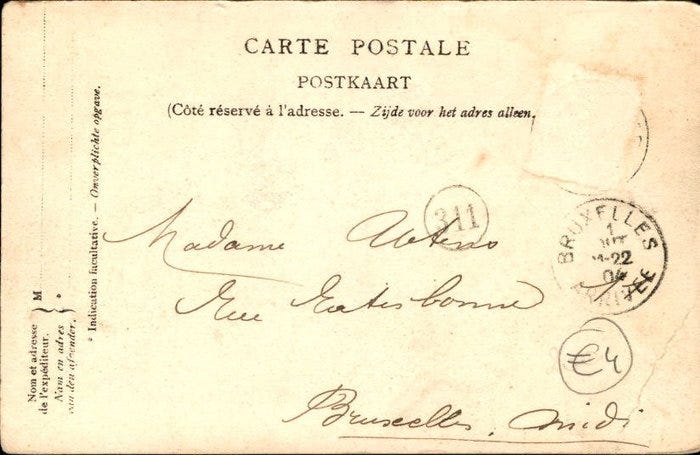 CARTE POSTALE
POSTKAART
(Côté réservé à l'adresse. — Zijde voor het adres alleen.
Nom et adresse
de l'expéditeur.
Nam en adres
van den afzender.
M
*
* Indication facultative. — Onverplichte opgave.
311
BRUXELLES
1
22
04
Madame
Rue Ratisbonne
Bruxelles. midi
€4